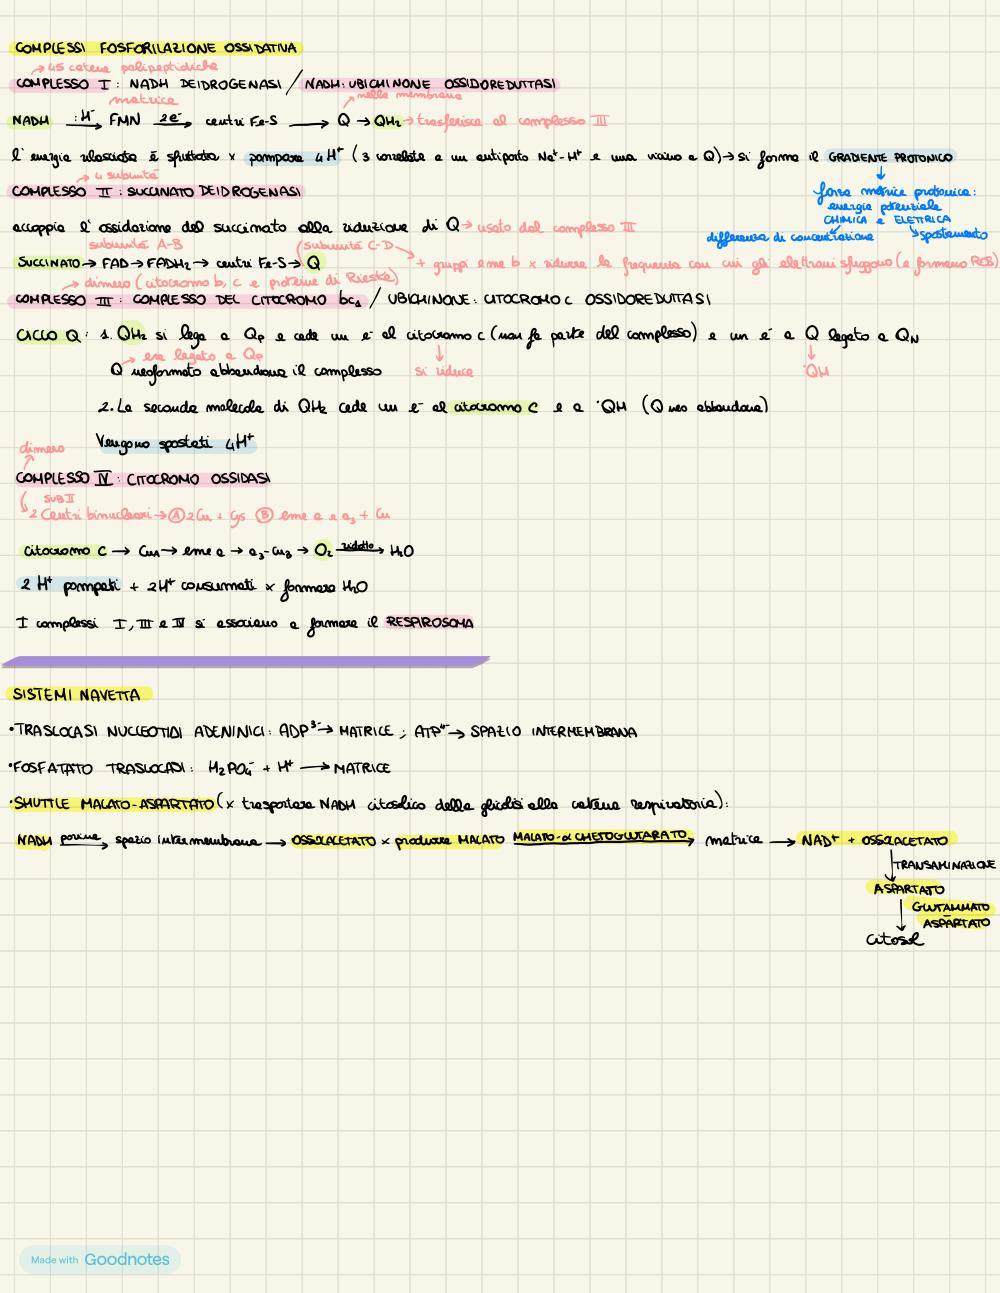 COMPLESSI FOSFORILAZIONE OSSIDATIVA
→ 45 catene polipeptidiche
COMPLESSO I: NADH DEIDROGENASI / NADH:UBICHINONE OSSIDOREDUTTASI
matrice
→ nella membrana
NADH :H⁻→ FMN 2e⁻→ centri Fe-S → Q → QH₂ → trasferisce al complesso III
l'energia rilasciata è sfruttata x pompare 4H⁺ (3 correlate a un antiporto Na⁺-H⁺ e una vicino a Q) → si forma il GRADIENTE PROTONICO
→ 4 subunità
COMPLESSO II: SUCCINATO DEIDROGENASI
forza motrice protonica:
energia potenziale
CHIMICA e ELETTRICA
differenza di concentrazione
spostamento
accoppia l'ossidazione del succinato alla riduzione di Q → usato dal complesso III
subunità A-B
(subunità C-D
SUCCINATO → FAD → FADH₂ → centri Fe-S → Q
+ gruppi eme b x ridurre la frequenza con cui gli elettroni sfuggono (e formano ROS)
→ dimero (citocromo b, c e proteine di Rieske)
COMPLESSO III: COMPLESSO DEL CITOCROMO bc₁ / UBICHINONE: CITOCROMO C OSSIDOREDUTTASI
CICLO Q: 1. QH₂ si lega a Qp e cede un e⁻ al citocromo c (non fa parte del complesso) e un e⁻ a Q legato a QN
→ era legato a Qp
Q neoformato abbandona il complesso
si riduce
·QH
2. La seconda molecola di QH₂ cede un e⁻ al citocromo c e a ·QH (Q neo abbandona)
Vengono spostati 4H⁺
dimero
COMPLESSO IV: CITOCROMO OSSIDASI
SUB II
2 Centri binucleari → Ⓐ 2Cu + Cys Ⓑ eme a e a₃ + Cu
citocromo c → CuA → eme a → a₃-CuB → O₂ ridotto→ H₂O
2 H⁺ pompati + 2H⁺ consumati x formare H₂O
I complessi I, III e IV si associano a formare il RESPIROSOMA
SISTEMI NAVETTA
•TRASLOCASI NUCLEOTIDI ADENINICI: ADP³⁻ → MATRICE ; ATP⁴⁻ → SPAZIO INTERMEMBRANA
•FOSFATATO TRASLOCASI: H₂PO₄⁻ + H⁺ → MATRICE
•SHUTTLE MALATO-ASPARTATO (x trasportare NADH citosolico della glicolisi alla catena respiratoria):
NADH porine→ spazio intermembrana → OSSALACETATO x produrre MALATO MALATO-α CHETOGLUTARATO→ matrice → NAD⁺ + OSSALACETATO
TRANSAMINAZIONE
ASPARTATO
GLUTAMMATO
ASPARTATO
Citosol
Made with Goodnotes